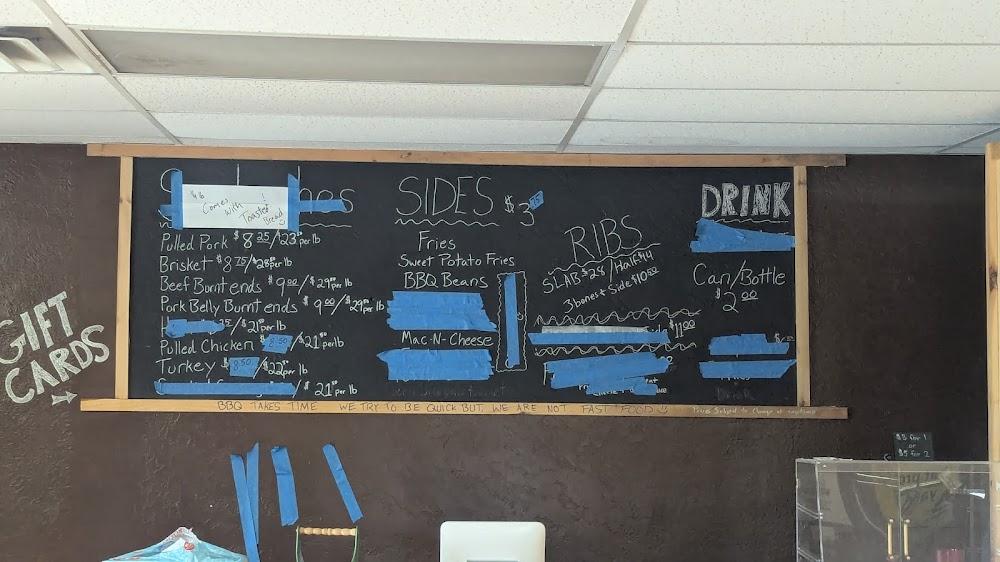 GIFT
CARDS
1/4 lb
Comes
with
Toasted
Bread
Pulled Pork $8.25/$23.00 per lb
Brisket $8.75/$28.00 per lb
Beef Burnt ends $9.00/$29.00 per lb
Pork Belly Burnt ends $9.00/$29.00 per lb
/$21.00 per lb
Pulled Chicken 8.50/$21.50 per lb
Turkey 8.50/$22.00 per lb
$21.00 per lb
SIDES $3.75
Fries
Sweet Potato Fries
BBQ Beans
Mac-N-Cheese
RIBS
SLAB $28/Half $14
3 bones + Side $10.50
$11.00
DRINK
Can/Bottle
$2.00
BBQ TAKES TIME WE TRY TO BE QUICK BUT WE ARE NOT FAST FOOD
Prices Subject to Change at anytime
$3 for 1
or
$5 for 2